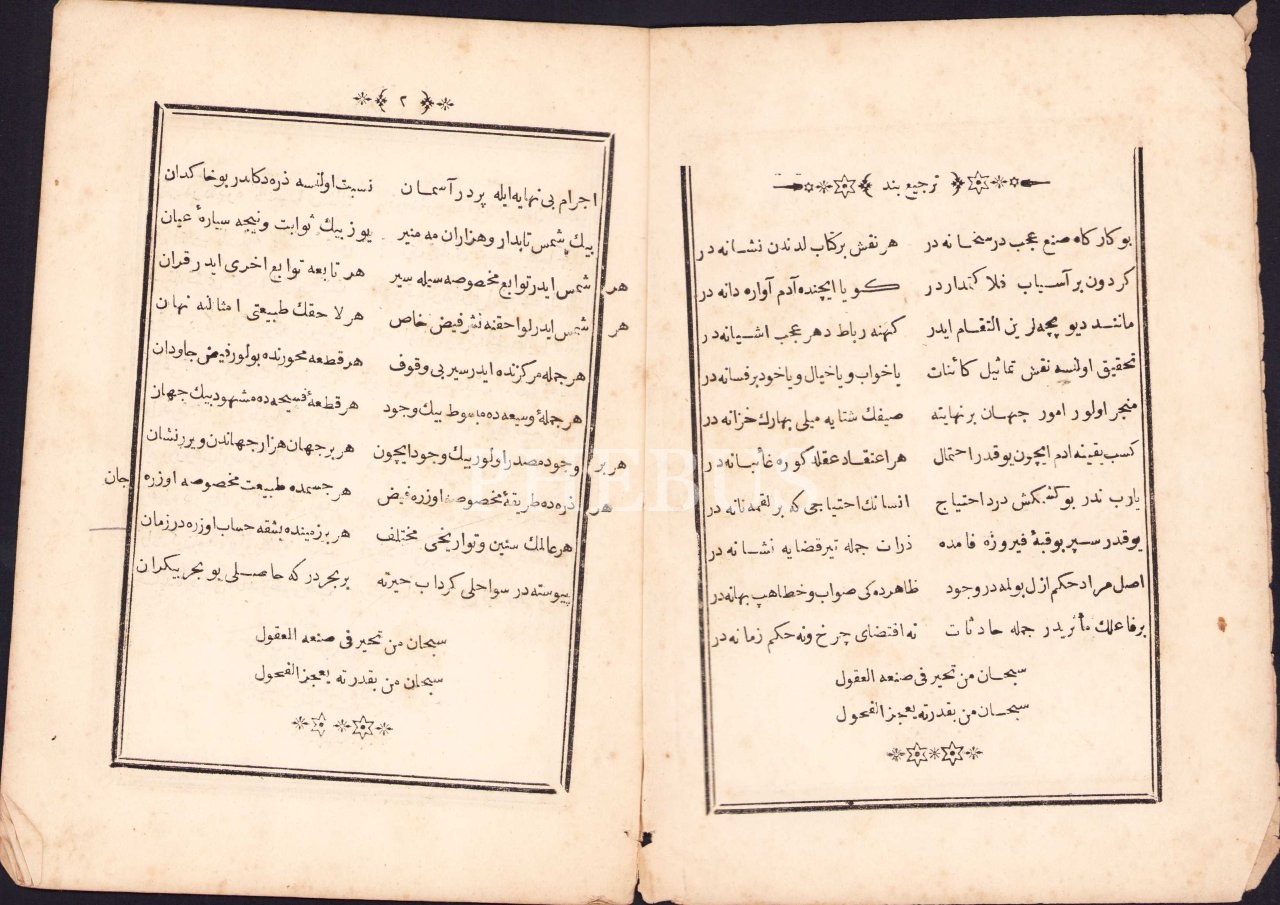 ترجیع بند
بو کارکاه صنع عجب درسخانه در هر نقش برکتاب لدندن نشانه در
کردون بر آسیاب فلاکتمدار در کویا ایچنده آدم آواره دانه در
مانند دیو بچه لرین التقام ایدر کهنه رباط دهر عجب اشیانه در
تحقیق اولنسه نقش تماثیل کائنات یاخواب و یاخیال و یاخود برفسانه در
منجر اولور امور جهان برنهایته صیفك شتایه میلی بهارك خزانه در
کسب یقینه ادم ایچون یوقدر احتمال هر اعتقاد عقله کوره غائبانه در
یارب ندر بوکشمکش درد احتیاج انسانك احتیاجی که برلقمه نانه در
یوقدر سپر بوقبهٔ فیروزه فامده ذرات جمله تیرقضایه نشانه در
اصل مراد حکم ازل بولمه در وجود ظاهرده کی صواب و خطا هپ بهانه در
برفاعلك مأثریدر جمله حادثات نه اقتضای چرخ ونه حکم زمانه در
سبحان من تحیر فی صنعه العقول
سبحان من بقدرته یعجز الفحول
٢
اجرام بی نهایه ایله پر در آسمان نسبت اولنسه ذره دکلدر بوخاکدان
بیك شمس تابدار وهزاران مه منیر یوز بیك ثوابت ونیجه سیارهٔ عیان
هر شمس ایدر توابع مخصوصه سیله سیر هر تابعه توابع اخری ایدر قران
هر شمس ایدر لواحقنه نشر فیض خاص هر لاحقك طبیعتی امثالنه نهان
هر جمله مرکزنده ایدر سیر بی وقوف هر قطعه محورنده بولور فیض جاودان
هر جملهٔ وسیعه ده مبسوط بیك وجود هر قطعهٔ فسیحه ده مشهود بیك جهان
هر بر وجود مصدر اولور بیك وجود ایچون هر برجهان هزار جهاندن ویرر نشان
هر ذره ده طریقهٔ مخصوصه اوزره فیض هر جسمده طبیعت مخصوصه اوزره جان
هر عالمك سنین وتواریخی مختلف هر بر زمینده بشقه حساب اوزره در زمان
پیوسته در سواحلی کرداب حیرته بر بحر در که حاصلی بو بحر بیکران
سبحان من تحیر فی صنعه العقول
سبحان من بقدرته یعجز الفحول
PHEBUS